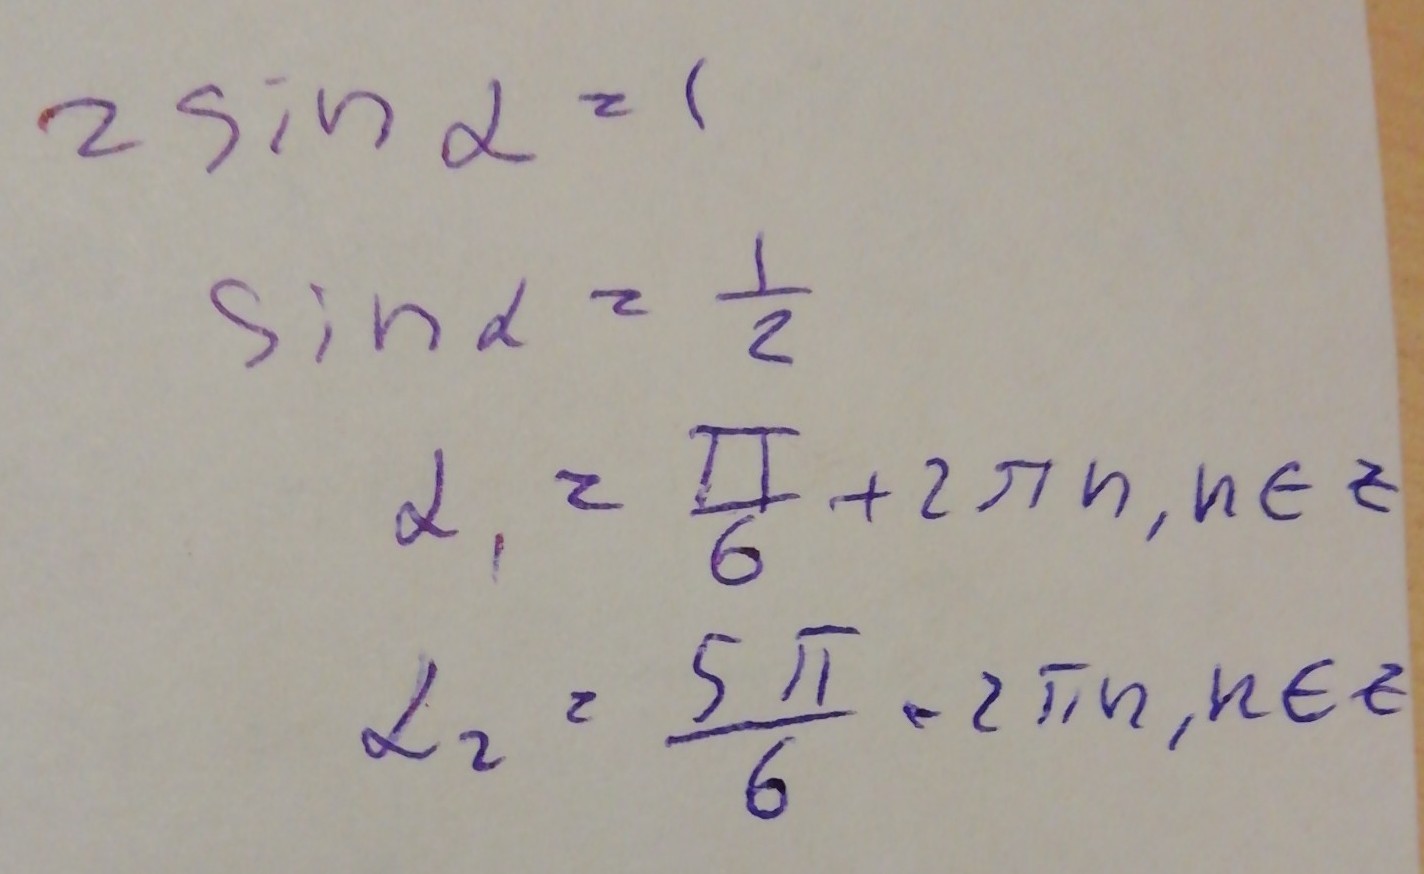 2 sin α = 1
sin α = 1/2
α₁ = π/6 + 2πn, n ∈ z
α₂ = 5π/6 - 2πn, n ∈ z